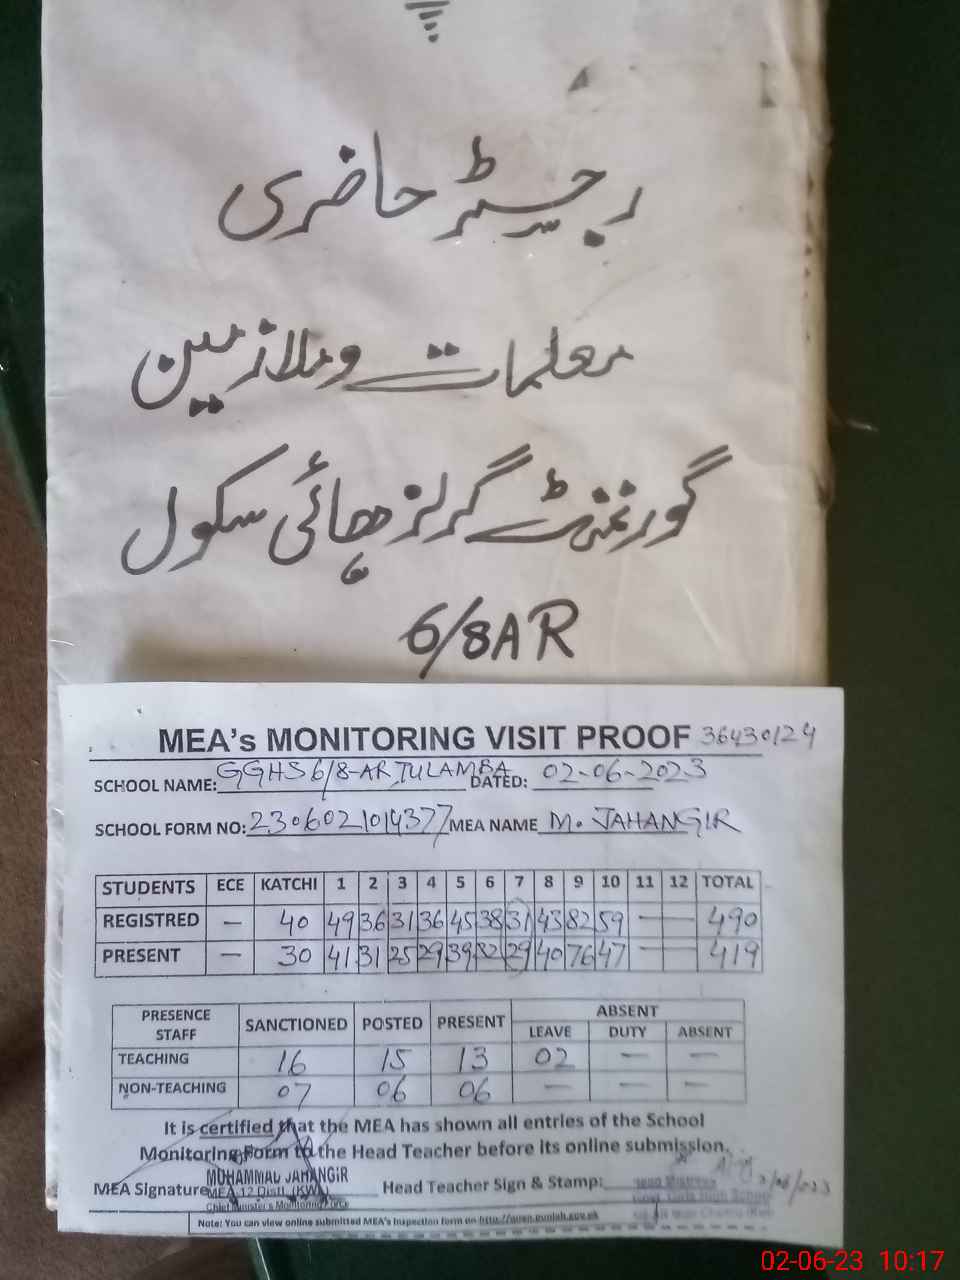 رجسٹر حاضری
معلمات و ملازمین
گورنمنٹ گرلز ہائی سکول
6/8AR
MEA's MONITORING VISIT PROOF 36430124
SCHOOL NAME: GGHS 6/8-AR TULAMBA DATED: 02-06-2023
SCHOOL FORM NO: 2306021014377 MEA NAME M. JAHANGIR
STUDENTS ECE KATCHI 1 2 3 4 5 6 7 8 9 10 11 12 TOTAL
REGISTRED — 40 49 36 31 36 45 38 31 43 82 59 — — 490
PRESENT — 30 41 31 25 29 39 32 29 40 76 47 — — 419
PRESENCE STAFF SANCTIONED POSTED PRESENT ABSENT
LEAVE DUTY ABSENT
TEACHING 16 15 13 02 — —
NON-TEACHING 07 06 06 — — —
It is certified that the MEA has shown all entries of the School
Monitoring Form to the Head Teacher before its online submission.
MEA Signature MUHAMMAD JAHANGIR Head Teacher Sign & Stamp:
MEA 12 Distt. (KWL)
Chief Minister's Monitoring Force
Note: You can view online submitted MEA's Inspection form on
02-06-23 10:17